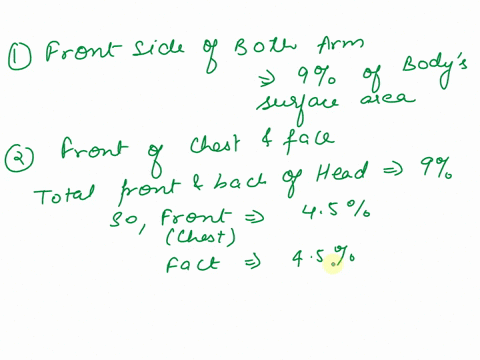 ① Front Side of Both Arm
⇒ 9% of Body's
surface area
② Front of Chest & face
Total front & back of Head ⇒ 9%
So, Front ⇒ 4.5%
(Chest)
Fact ⇒ 4.5%